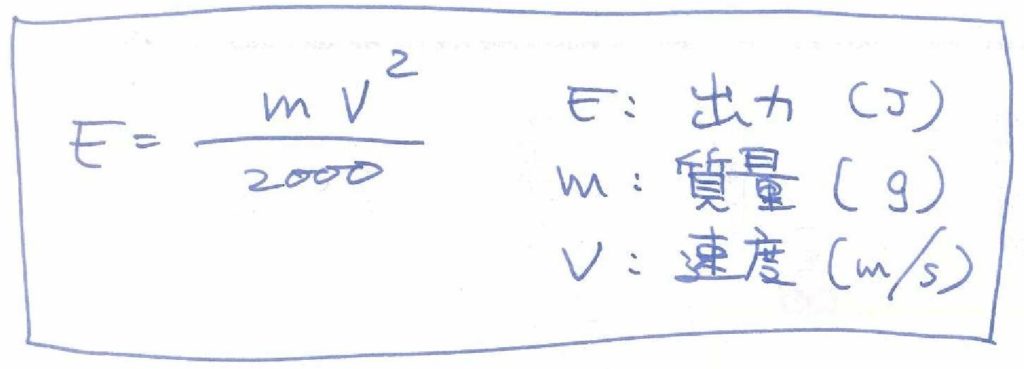 E = mV²/2000
E: 出力 (J)
m: 質量 (g)
V: 速度 (m/s)